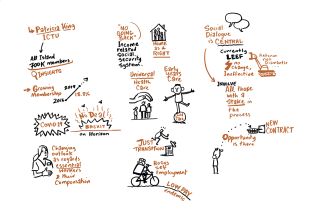 Patricia King
ICTU
All Island
700K members.
INSIGHTS
Growing
Membership
2016
COVID19
No Deal
BREXIT
on Horizon
Changing
outlook
as regards
essential
workers
& their
Compensation
"NO
GOING
BACK"
Income
related
Social
security
system.
HOME
as a
RIGHT
Universal
Health
Care
Early
Years
Care
JUST
TRANSITION
Bogus
self
employment
LOW PAY
endemic
Social
Dialogue
is CENTRAL
Currently
LEEF
no
change,
ineffective
INVOLVE
ALL those
with a
stake in
the
process
NEW
CONTRACT
Opportunity
is there